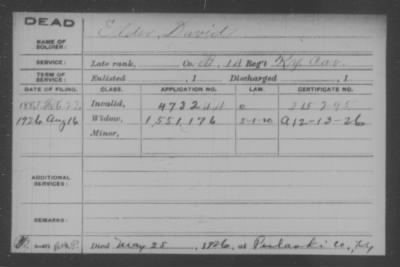 DEAD
NAME OF SOLDIER: Elder, David
SERVICE: Late rank, Co. 1st Reg't Ky Cav.
TERM OF SERVICE: Enlisted , 1 Discharged , 1
DATE OF FILING. CLASS. APPLICATION NO. LAW. CERTIFICATE NO.
1883 Feb Invalid, 4732
1926 Aug 16 Widow, 1,551,176 5-1-20 A12-13-26
Minor,
ADDITIONAL SERVICES:
REMARKS:
Died May 25, 1926, at Pulaski Co., Ky